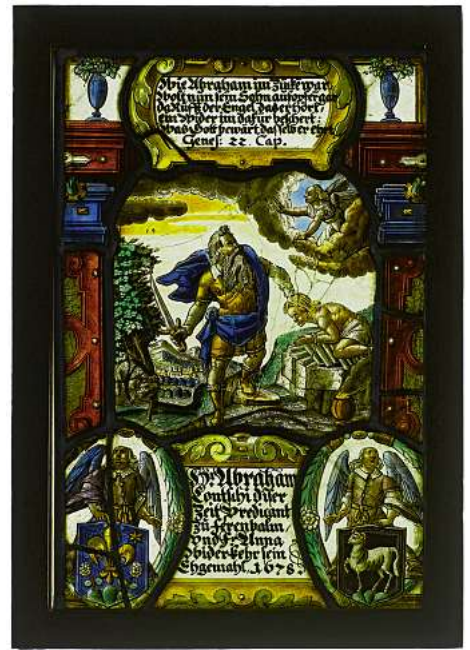 Wie Abraham im
Wolt nun sein Sohn aufopfer gar
da Rufft der Engel das er hört
ein Wider im dafür beschert:
Was Gott bewärt das selb er ehrt
Genes: 22. Cap.
Hr. Abraham
Contschi diser
Zeit Predicant
zů Ferenbalm
vnd Fr. Anna
Widerkehr sein
Ehgemahl. 1678.